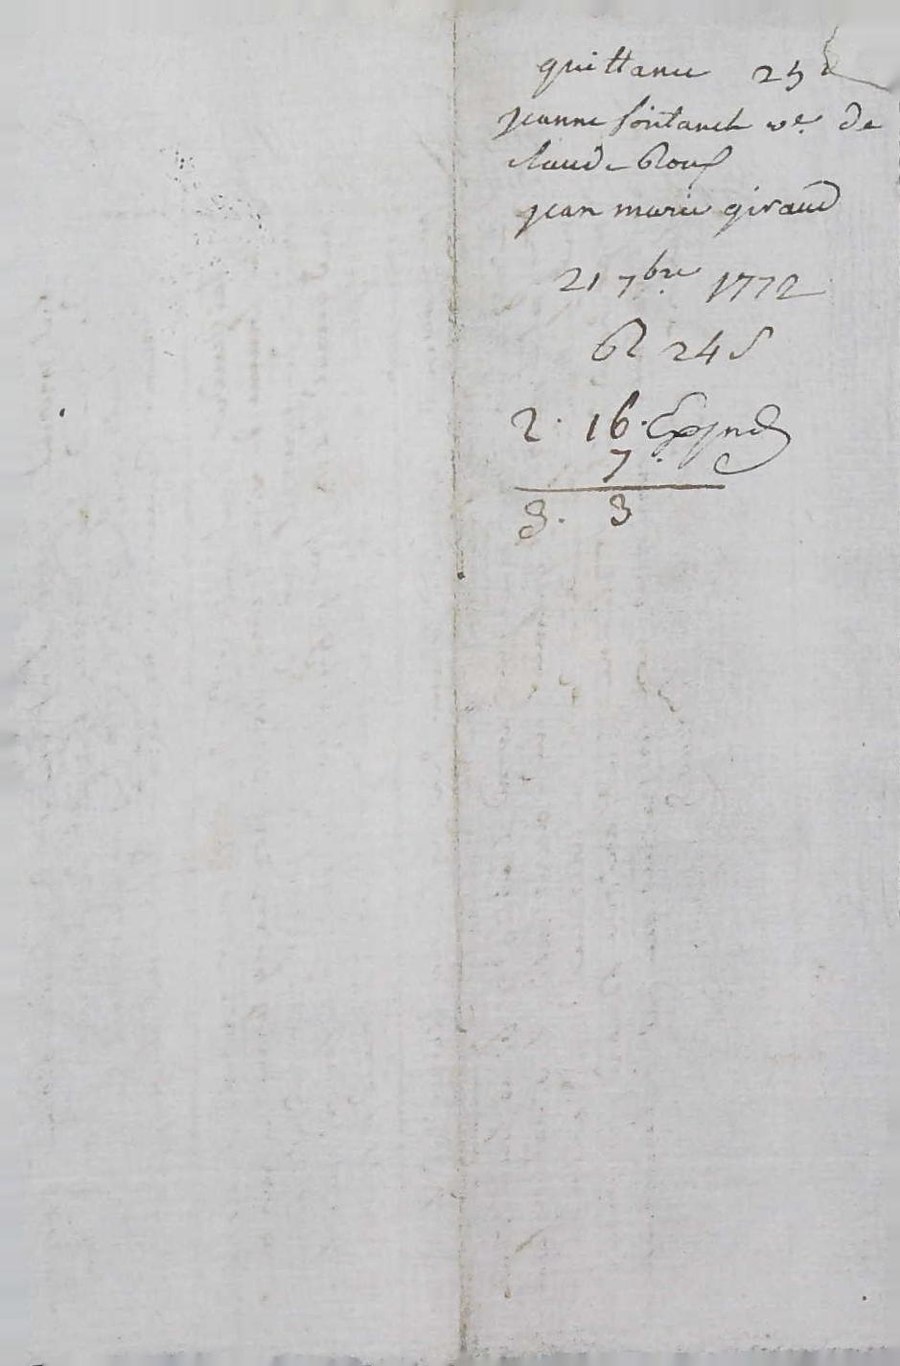 quittance 25 #
jeanne fontanel ve. de
claude Roux
jean marie giraud
21 7bre 1772
R 24 s
2. 16. Expynd
7.
3. 3